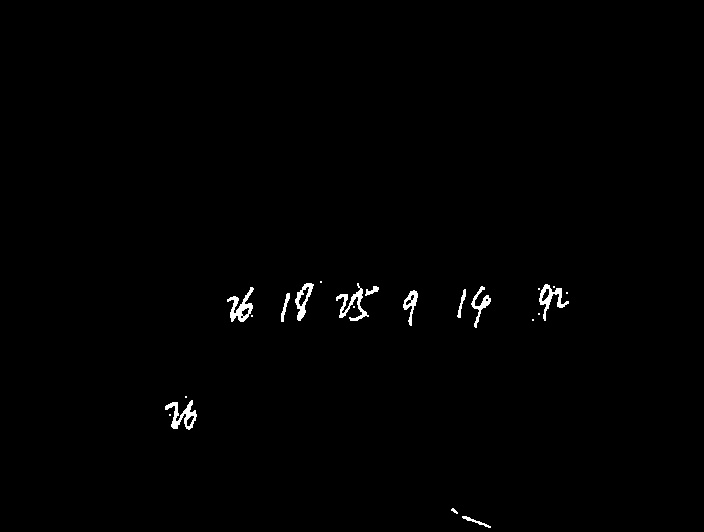 26 18 25 9 14 92
26